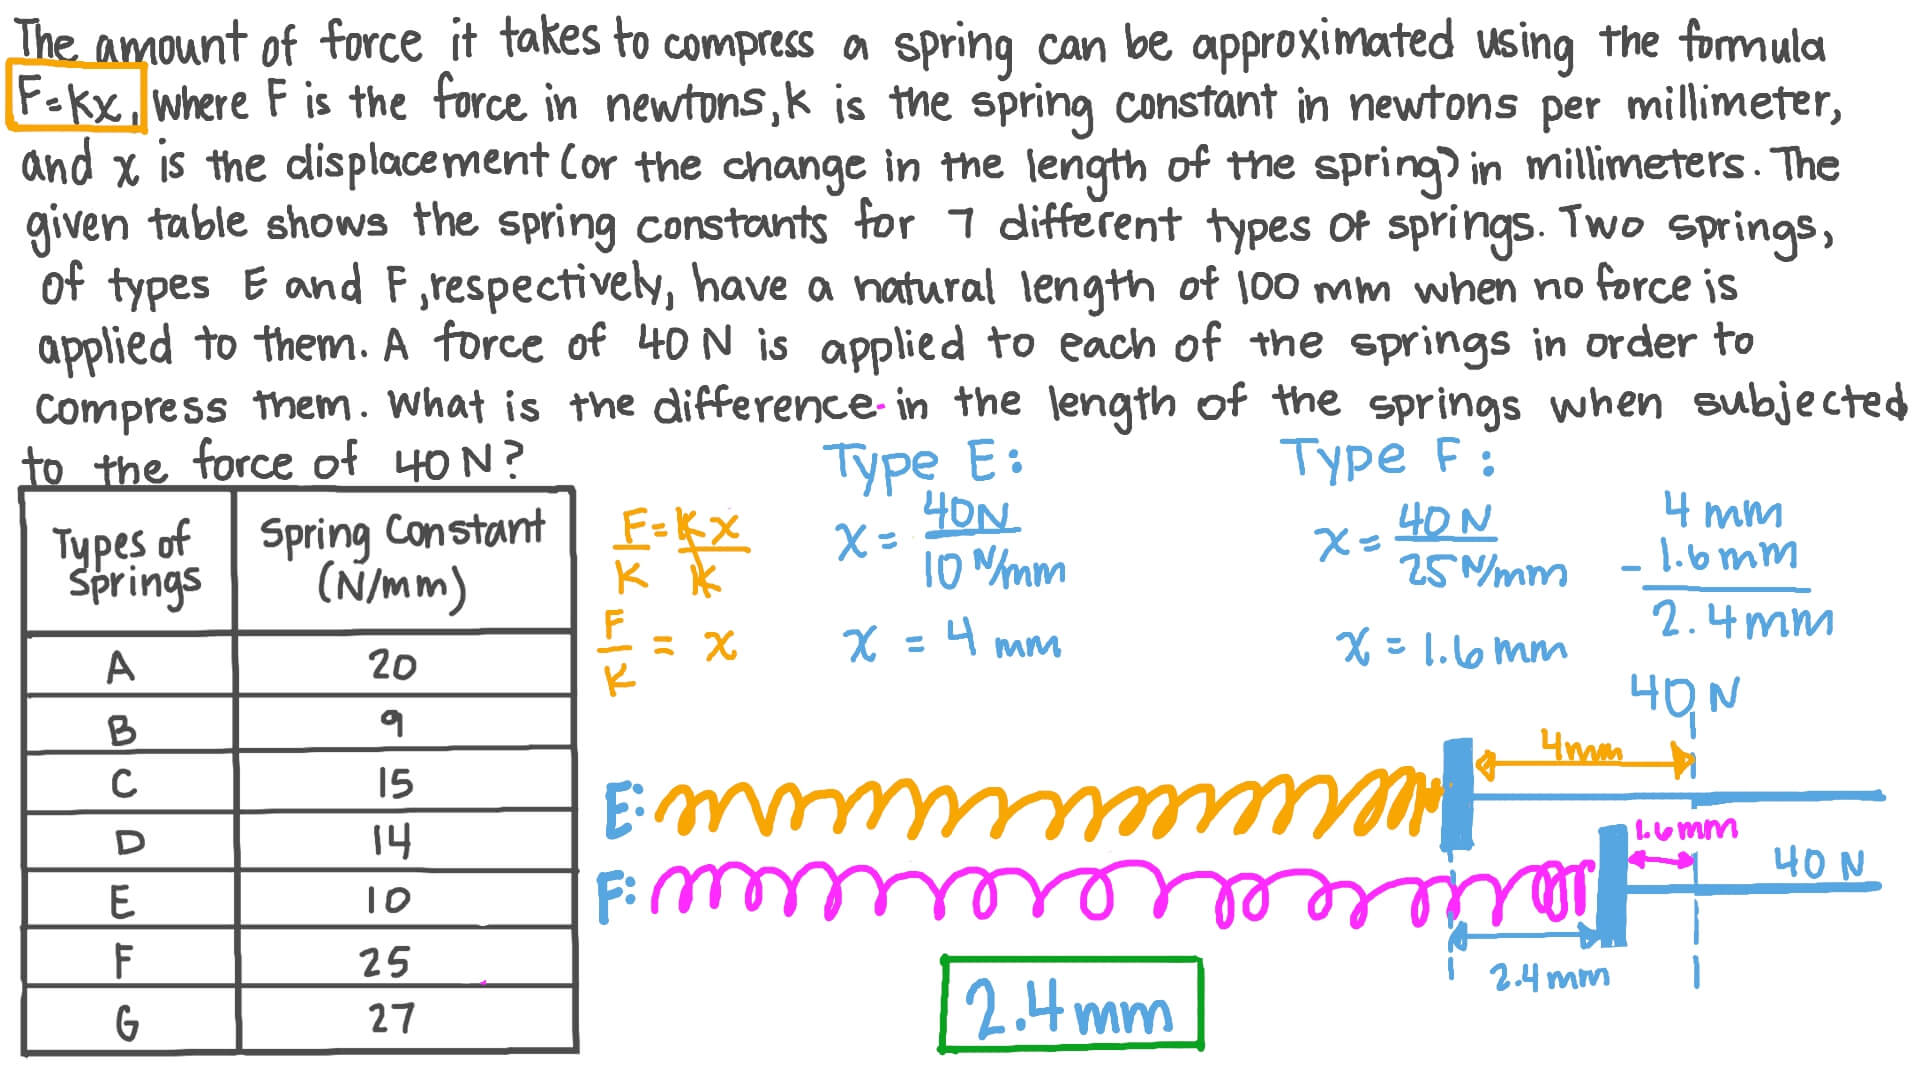 The amount of force it takes to compress a spring can be approximated using the formula
F=kx, where F is the force in newtons, k is the spring constant in newtons per millimeter,
and x is the displacement (or the change in the length of the spring) in millimeters. The
given table shows the spring constants for 7 different types of springs. Two springs,
of types E and F, respectively, have a natural length of 100 mm when no force is
applied to them. A force of 40 N is applied to each of the springs in order to
compress them. What is the difference in the length of the springs when subjected
to the force of 40 N?
Types of Springs Spring Constant (N/mm)
A 20
B 9
C 15
D 14
E 10
F 25
G 27
F = Kx
K K
F/K = x
Type E:
x = 40N
10 N/mm
x = 4 mm
Type F:
x = 40 N
25 N/mm
x = 1.6 mm
4 mm
- 1.6 mm
2.4 mm
40 N
4mm
E:
1.6mm
F:
40 N
2.4 mm
2.4 mm